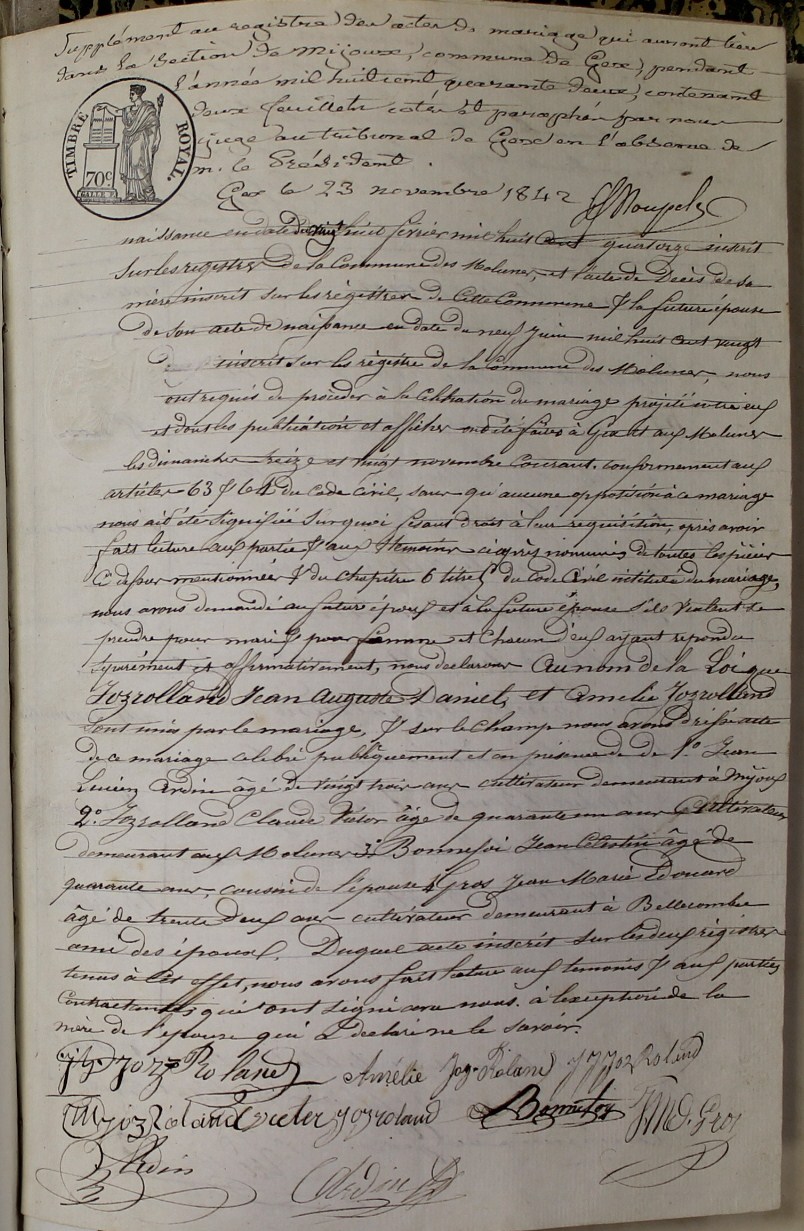 Supplément au registre des actes de mariage qui auront lieu
dans la section de Mijoux, commune de Gex, pendant
l'année mil huit cent quarante deux, contenant
deux feuillets cotés et paraphés par nous
juge au tribunal de Gex en l'absence de
m. le Président.
TIMBRE ROYAL.
70c
Gex le 23 novembre 1842
naissance en date du vingt huit février mil huit cent quatorze inscrit
sur les registres de la Commune des Molunes, et l'acte de Décès de sa
mère inscrit sur les régistres de Cette Commune & la future épouse
de son acte de naissance en date du neuf Juin mil huit cent vingt
inscrit sur les régistre de la Commune des Molunes, nous
ont requis de procéder à la Célébration du mariage projeté entre eux
et dont les publication et affiches ont été faites à Gex et aux Molunes
les dimanches treize et vingt novembre Courant. Conformément aux
articles 63 & 64 du Code Civil, sans qu'aucune opposition à ce mariage
nous ait été signifiée Sur quoi fesant droit à leur requisition, après avoir
fait lecture aux parties & aux témoins ci après nommés de toutes les pièces
Ci dessus mentionnées & du chapitre 6 titre 5 du Code Civil intitulé du mariage,
nous avons demandé au future époux et à la future épouse s'ils veulent se
prendre pour mari & pour femme et Chacun d'eux ayant repondu
séparément et affirmativement, nous declarons au nom de la Loi que
Jozrolland Jean Auguste Daniel, et Amelie Jozrolland
sont unis par le mariage, & sur le champ nous avons dréssé acte
de ce mariage celebré publiquement et en présence de de 1º Jean
Lucien Ardin âgé de vingt trois ans cultivateur demeurant à Mijoux
2º Jozrolland Claude Victor âgé de quarante un ans Cultivateur
demeurant aux Molunes 3º Bonnefoi Jean Célestin âgé de
quarante ans, cousin de l'épouse 4 Gros Jean Marie Edouard
âgé de trente deux ans cultivateur demeurant à Bellecombe
ami des époux. Duquel acte inscrit sur les deux régistres
tenus à Cet effet, nous avons fait lecture aux temoins & aux parties
Contractantes, qui ont signé avec nous. à l'exception de la
mère de l'épouse qui a declaré ne le savoir.
Joz Roland Amélie Joz-Roland JJ Joz Roland
Joz Roland Victor Jozroland Bonnefoy JMd. Gros
Ardin Ardin